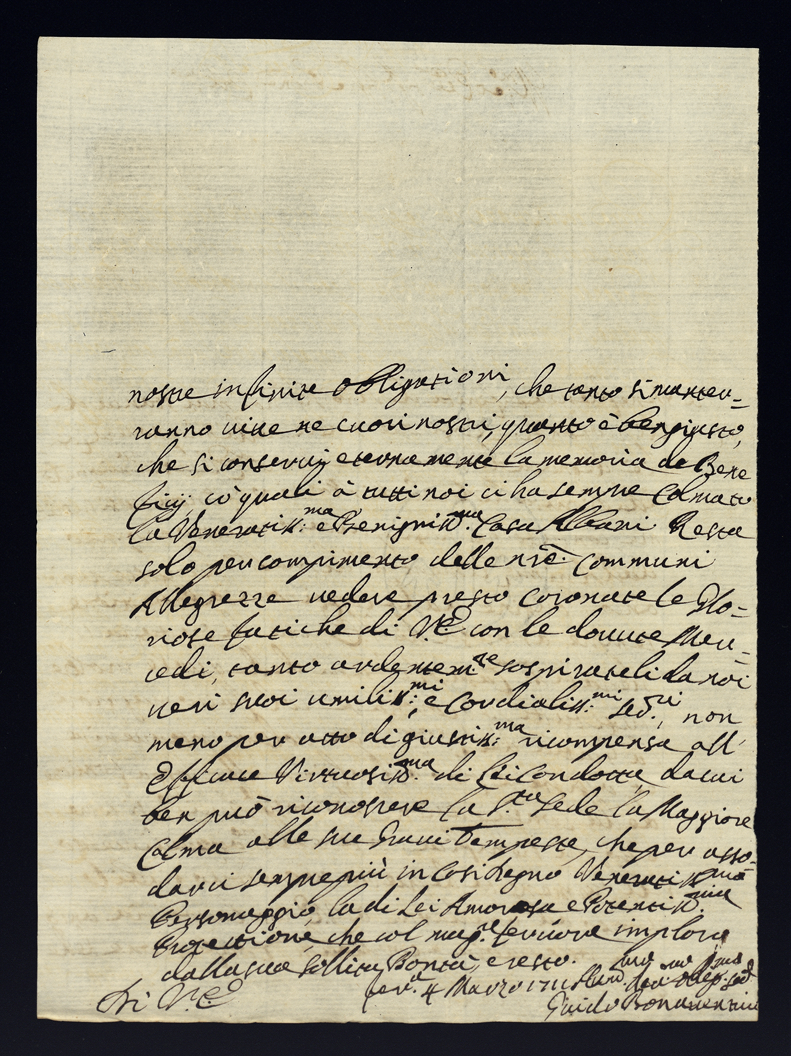 nostre infinite obbligationi, che tanto si manter=
ranno vive ne cuori nostri, quanto è ben giusto,
che si conservi eternamente la memoria de Bene
ficij, cō quali à tutti noi ci ha sempre colmato
la Veneratiss:ma e Benigniss:ma Casa Albani Resta
solo per compimento delle nrē communi
Allegrezze vedere presto coronate le Glo=
riose fatiche di VE con le dovute Mer=
cedi, tanto ardentem:te sospirateli da noi
veri suoi umiliss:mi e Cordialiss:mi Ser:ri, non
meno per atto di giustiss:ma ricompensa all'
Efficace Virtuosiss:ma di Lei Condotta, da cui
ben può riconoscere la S.ta Sede la Maggiore
Calma alle sue Gravi Tempeste, che per asso=
darci sempre più in Così degno Veneratiss:mo
Personaggio la di Lei Amorosa e Potentiss:ma
Protettione, che col mag:re fervore imploro
dalla sua solita Bontà, e resto.
Di V.E. 4 Marzo 1711
Guido Bonaventini